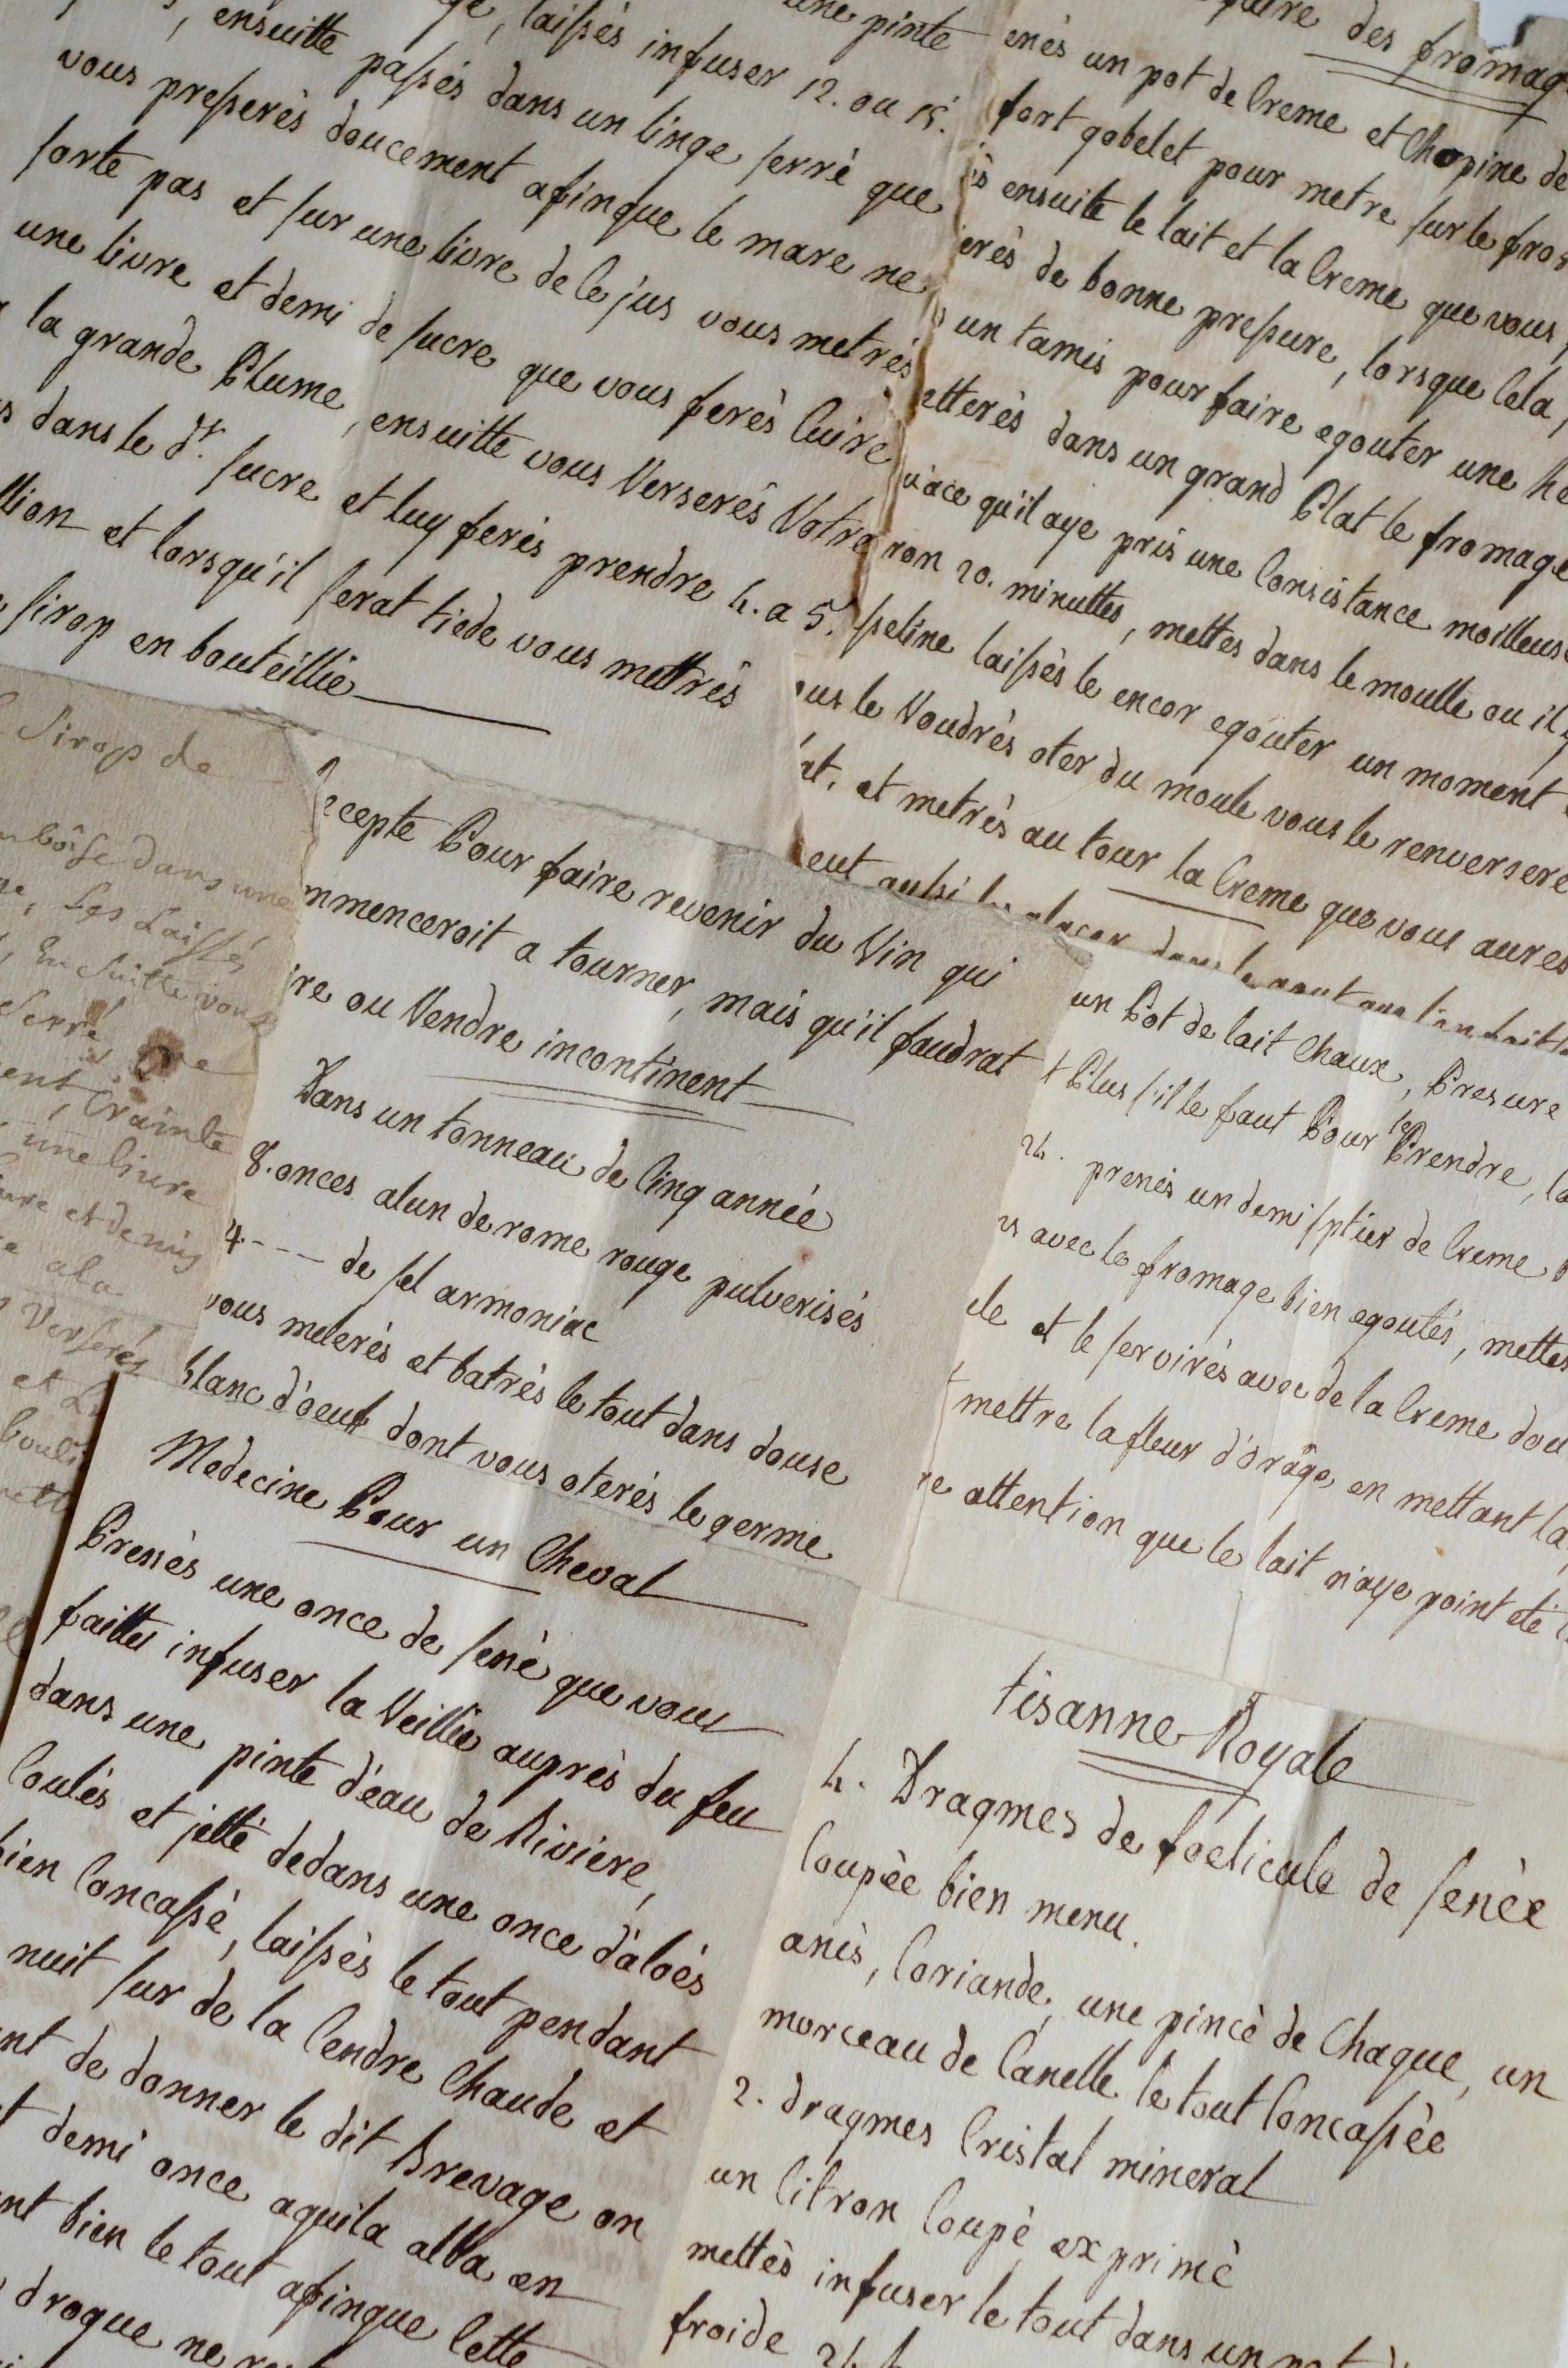 une pinte
laissés infuser 12. ou 15.
ensuitte passés dans un linge serré que
vous presserés doucement afinque le marc ne
sorte pas et sur une livre de ce jus vous metrés
une livre et demi de sucre que vous ferés Cuire
la grande Plume, ensuitte vous Verserés Votre
dans le dt. sucre et luy ferés prendre 4. a 5.
llion et lorsqu'il serat tiede vous mettrés
sirop en bouteillie
faire des fromag
enés un pot de Creme et Chopine de
fort gobelet pour metre sur le from
és ensuite le lait et la Creme que vous
erés de bonne pressure, lorsque Cela
un tamis pour faire egouter une he
etterés dans un grand Plat le fromage
u'ace qu'il aye pris une Consistance moilleuse
ron 20. minuttes, mettes dans le moulle ou il y
seline laissés le encor egouter un moment
ous le Voudrés oter du moule vous le renversere
at. et metrés au tour la Creme que vous aures
eut aussi les placer dans le
Sirop de
dans une
Les Laissés
En Suitte vous
Serré que
ent, Crainte
une livre
et demis
a la
Verserés
et L
ecepte Pour faire revenir du Vin qui
mmenceroit a tourner, mais qu'il faudrat
ire ou Vendre incontinent
Dans un tonneau de Cinq année
8. onces alun de rome rouge pulverisés
4.--- de sel armoniac
vous melerés et batrés le tout dans douse
blanc d'oeuf dont vous oterés le germe
un Pot de lait Chaux, Presure
t Plus s'il le faut Pour le Prendre, la
24. prenés un demi sptier de Creme
us avec le fromage bien egoutés, mettes
ele et le servirés avec de la Creme dou
mettre la fleur d'orage en mettant la
re attention que le lait n'aye point eté
Medecine Pour un Cheval
Prenés une once de sené que vous
faittes infuser la Veillie auprés du feu
dans une pinte d'eau de Riviere,
Coulés et jetté dedans une once d'aloés
bien Concassé, laissés le tout pendant
nuit sur de la Cendre Chaude et
nt de donner le dit Brevage on
t demi once aquila alba en
nt bien le tout afinque Cette
drogue ne
tisanne Royale
4. Dragmes de foelicule de senée
Coupée bien menu.
anis, Coriande, une pincé de Chaque, un
morceau de Canelle le tout Concassée
2. dragmes Cristal mineral
un Citron Coupé exprimé
mettés infuser le tout dans un pot
froide 24 h